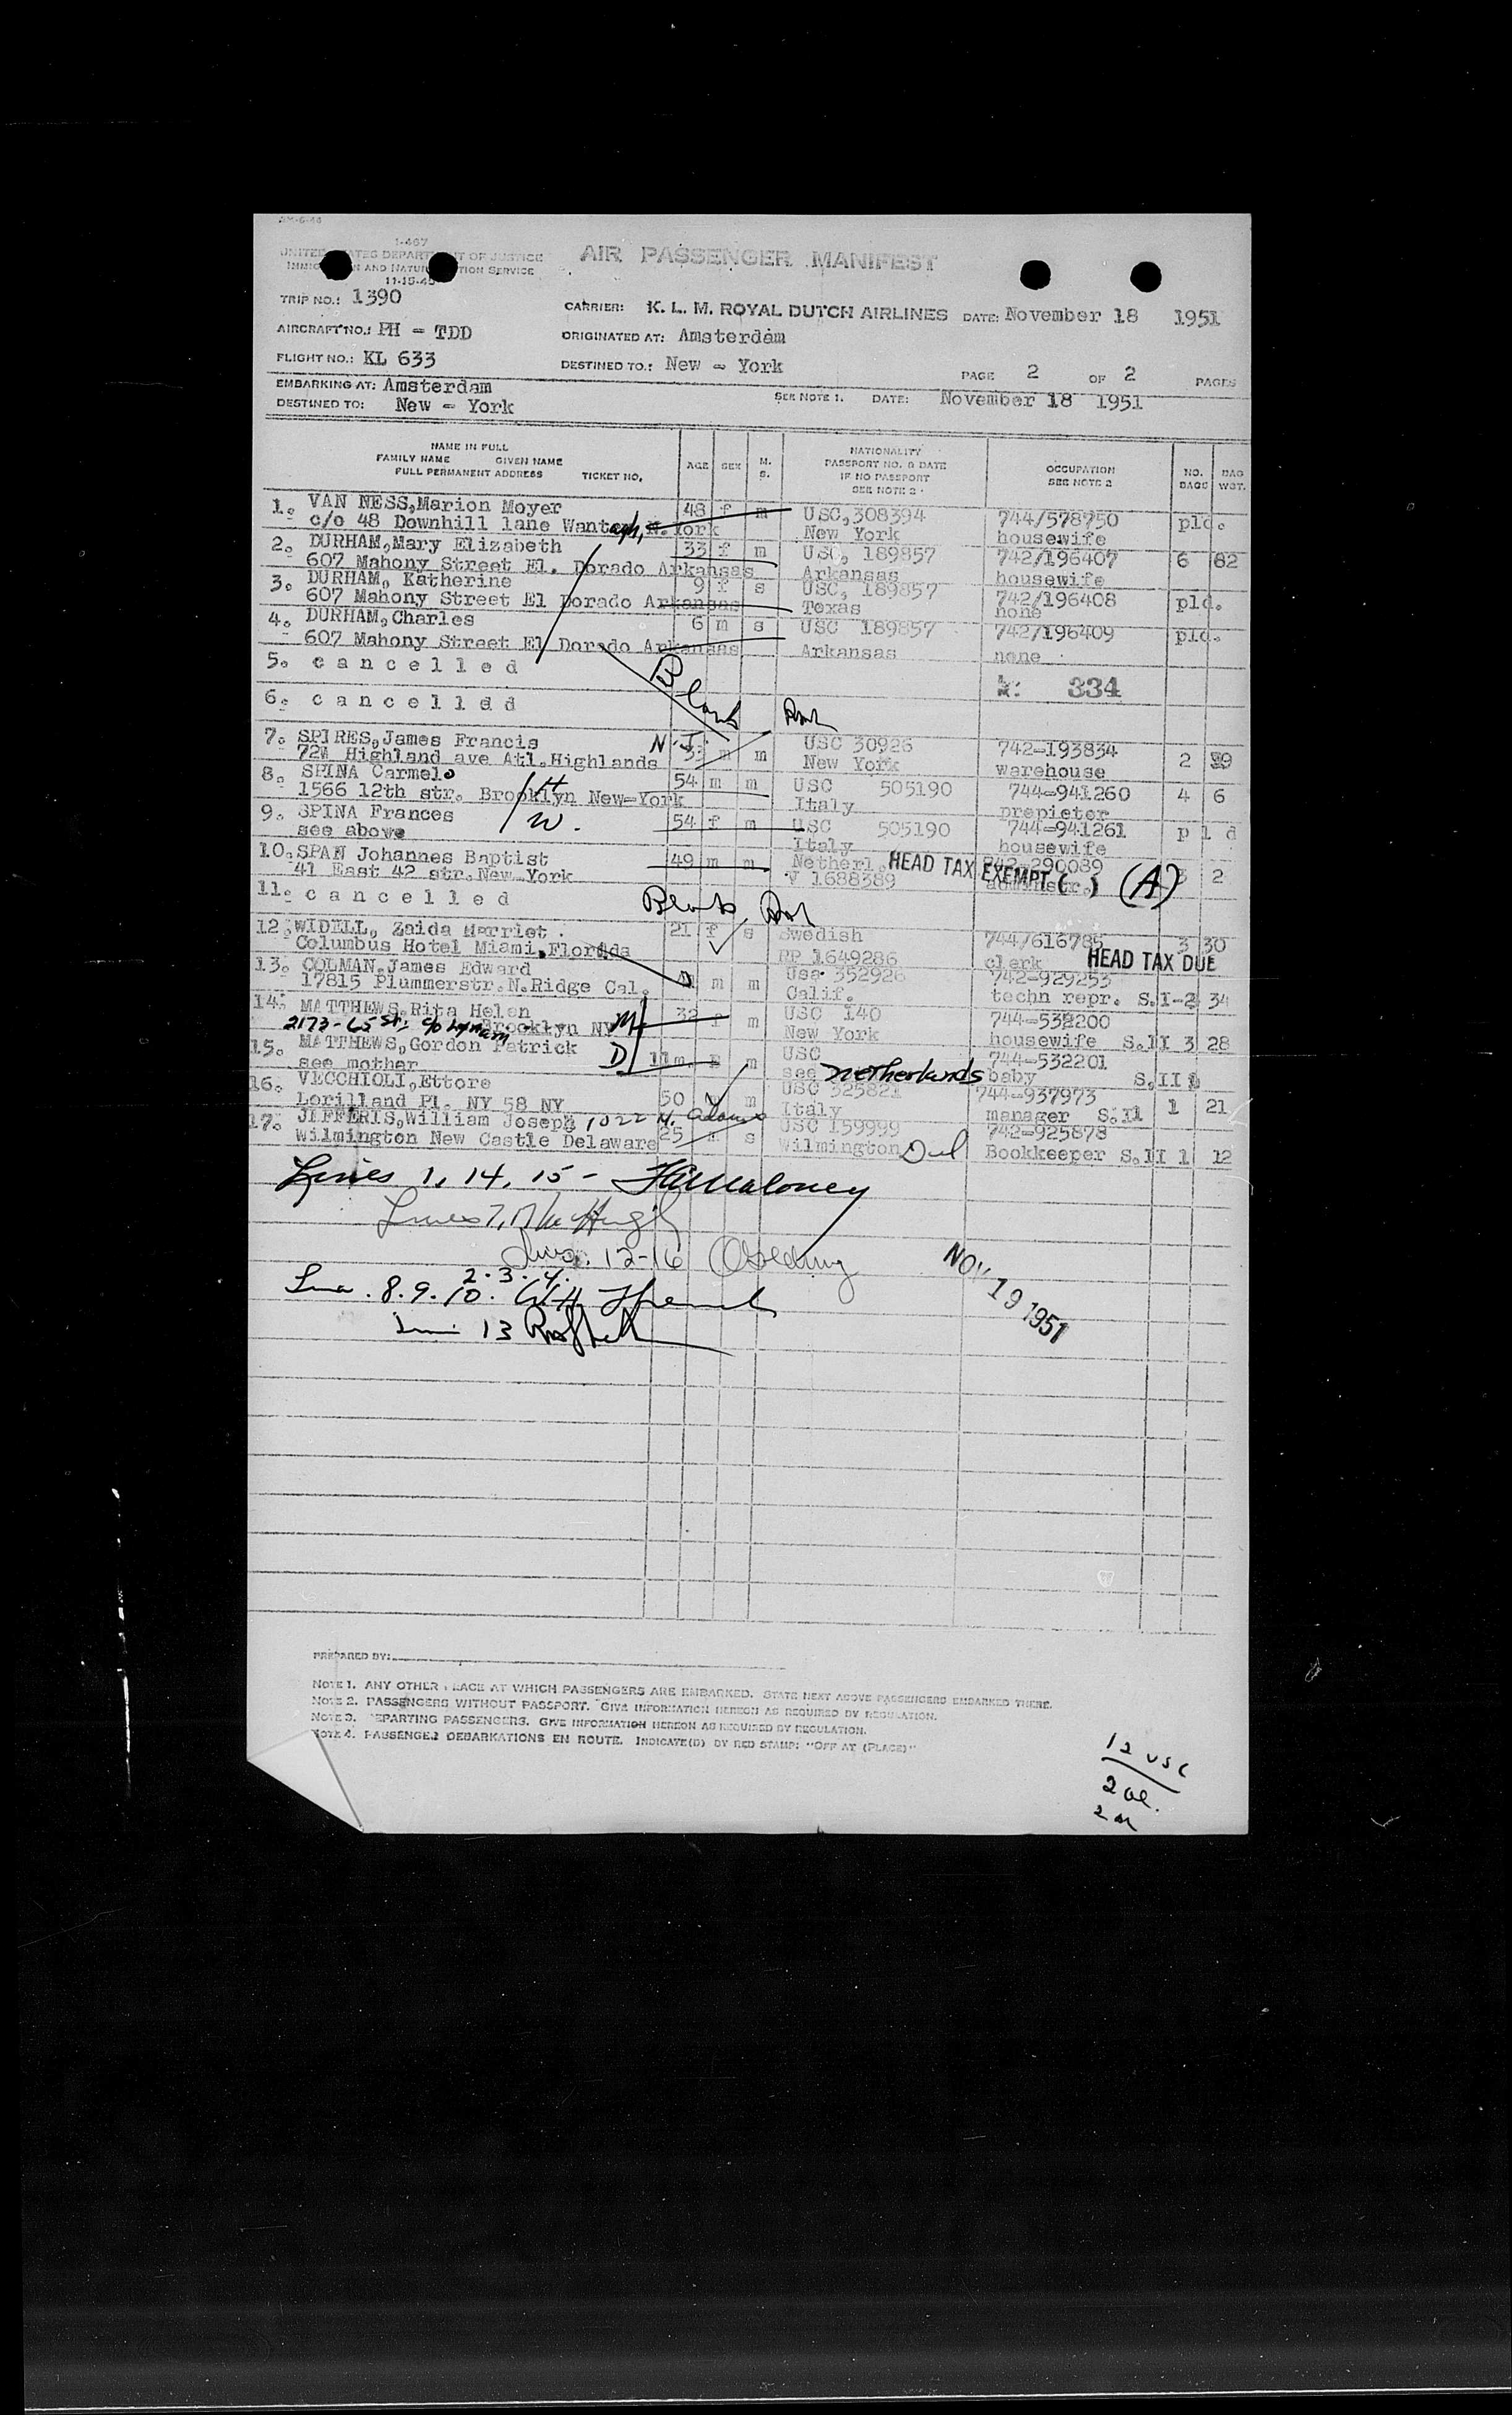 1-467
UNITED STATES DEPARTMENT OF JUSTICE
IMMIGRATION AND NATURALIZATION SERVICE
11-15-45
AIR PASSENGER MANIFEST
TRIP NO.: 1390
CARRIER: K. L. M. ROYAL DUTCH AIRLINES DATE: November 18 1951
AIRCRAFT NO.: PH - TDD
ORIGINATED AT: Amsterdam
FLIGHT NO.: KL 633
DESTINED TO.: New - York
PAGE 2 OF 2 PAGES
EMBARKING AT: Amsterdam
SEE NOTE 1. DATE: November 18 1951
DESTINED TO: New - York
NAME IN FULL
FAMILY NAME GIVEN NAME
FULL PERMANENT ADDRESS TICKET NO.
AGE SEX M. S.
NATIONALITY
PASSPORT NO. & DATE
IF NO PASSPORT
SEE NOTE 2
OCCUPATION
SEE NOTE 2
NO. BAGS
BAG WGT.
1. VAN NESS,Marion Moyer 48 f m USC,308394 744/578750 pld.
c/o 48 Downhill lane Wantagh, N.York New York housewife
2. DURHAM,Mary Elizabeth 33 f m USC, 189857 742/196407 6 82
607 Mahony Street El. Dorado Arkansas Arkansas housewife
3. DURHAM, Katherine 9 f s USC, 189857 742/196408 pld.
607 Mahony Street El Dorado Arkansas Texas none
4. DURHAM,Charles 6 m s USC 189857 742/196409 pld.
607 Mahony Street El Dorado Arkansas Arkansas none
5. c a n c e l l e d
334
6. c a n c e l l d d
Blank
7. SPIRES,James Francis N.J. m m USC 30926 742-193834 2
72W Highland ave Atl.Highlands New York warehouse
8. SPINA Carmelo H 54 m m USC 505190 744-941260 4 6
1566 12th str. Brooklyn New-York Italy propieter
9. SPINA Frances W. 54 f m USC 505190 744-941261 p l d
see above Italy housewife
10. SPAN Johannes Baptist 49 m m Netherl. 742-290089 2
41 East 42 str.New-York V 1688389
HEAD TAX EXEMPT ( ) (A)
11. c a n c e l l e d
Blank
12. WIDELL, Zaida Harriet. 21 f s Swedish 744/616785 3 30
Columbus Hotel Miami.Florida RP 1649286 clerk
HEAD TAX DUE
13. COLMAN,James Edward m m Usa 352926 742-929253
17815 Plummerstr.N.Ridge Cal. Calif. techn repr. S.I-2 34
14. MATTHEWS,Rita Helen M 32 f m USC 140 744-532200
2173-65 St. c/o Brooklyn NY New York housewife S.II 3 28
15. MATTHEWS,Gordon Patrick D 11m m USC 744-532201
see mother see Netherlands baby S.II
16. VECCHIOLI,Ettore 50 m m USC 325821 744-937973
Lorilland Pl. NY 58 NY Italy manager S.II 1 21
17. JEFFERIS,William Joseph 1022 N. Adams 25 s USC 159999 742-925878
Wilmington New Castle Delaware Wilmington Del Bookkeeper S.II 1 12
Lines 1, 14, 15 - Maloney
12-16
NOV 19 1951
2. 3. 4.
8. 9. 10.
13
PREPARED BY:
NOTE 1. ANY OTHER PLACE AT WHICH PASSENGERS ARE EMBARKED. STATE NEXT ABOVE PASSENGERS EMBARKED THERE.
NOTE 2. PASSENGERS WITHOUT PASSPORT. GIVE INFORMATION HEREON AS REQUIRED BY REGULATION.
NOTE 3. DEPARTING PASSENGERS. GIVE INFORMATION HEREON AS REQUIRED BY REGULATION.
NOTE 4. PASSENGER DEBARKATIONS EN ROUTE. INDICATE(D) BY RED STAMP: "OFF AT (PLACE)"
12 USC
2 al.